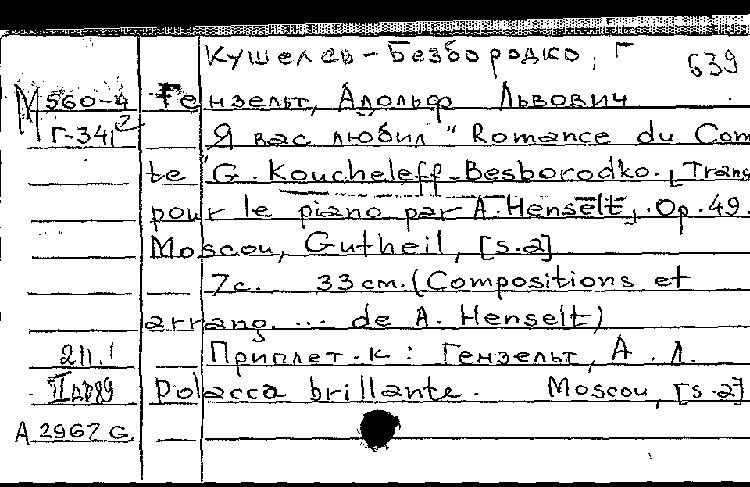 Кушелев-Безбородко, Г 539
М 560-4 Гензельт, Адольф Львович
Г-34, 2 Я вас любил" Romance du Com
te G. Koucheleff-Besborodko. [Trans
pour le piano par A. Henselt]. Op. 49.
Moscou, Gutheil, [s.a]
7с. 33 cm. (Compositions et
arrang. ... de A. Henselt)
2п.1 Приплет. к: Гензельт, А. Л.
Polacca brillante. Moscou, [s.a]
А 2967 G